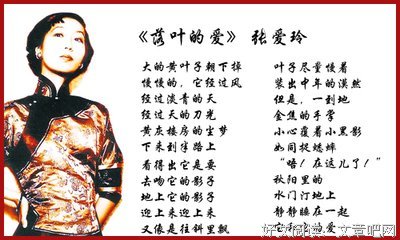 《落叶的爱》 张爱玲
大的黄叶子朝下掉
慢慢的，它经过风
经过淡青的天
经过天的刀光
黄灰楼房的尘梦
下来到半路上
看得出它是要
去吻它的影子
地上它的影子
迎上来迎上来
又像是往斜里飘
叶子尽量慢着
装出中年的漠然
但是，一到地
金焦的手掌
小心覆着小黑影
如同捉蟋蟀
“唔！在这儿了！”
秋阳里的
水门汀地上
静静睡在一起
它和它的爱
文章吧网